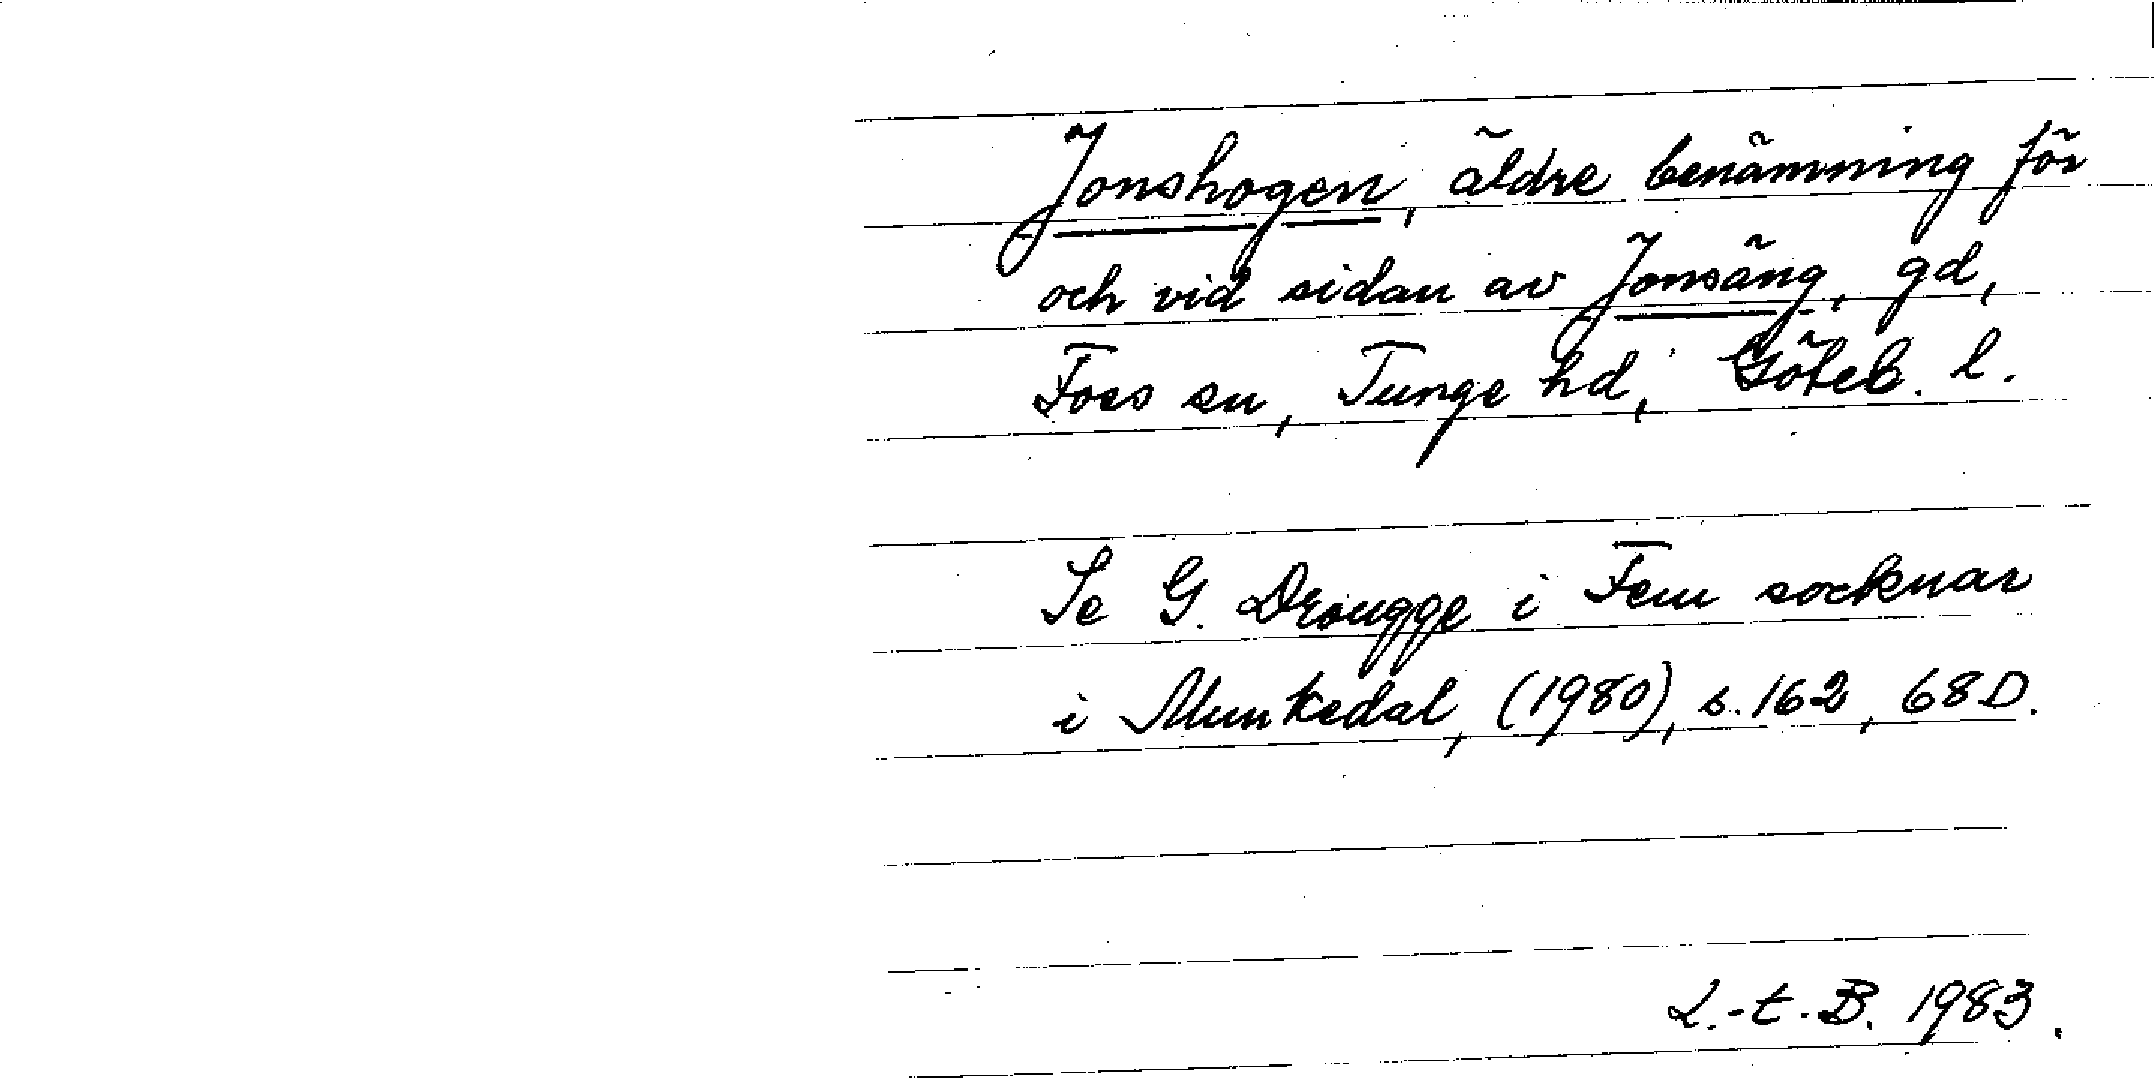 Jonshogen, äldre benämning för
och vid sidan av Jonsäng, gd,
Foss sn, Tunge hd, Göteb. l.
Se G. Drougge i Fem socknar
i Munkedal, (1980), s. 162, 68D.
L.-t. B. 1983.